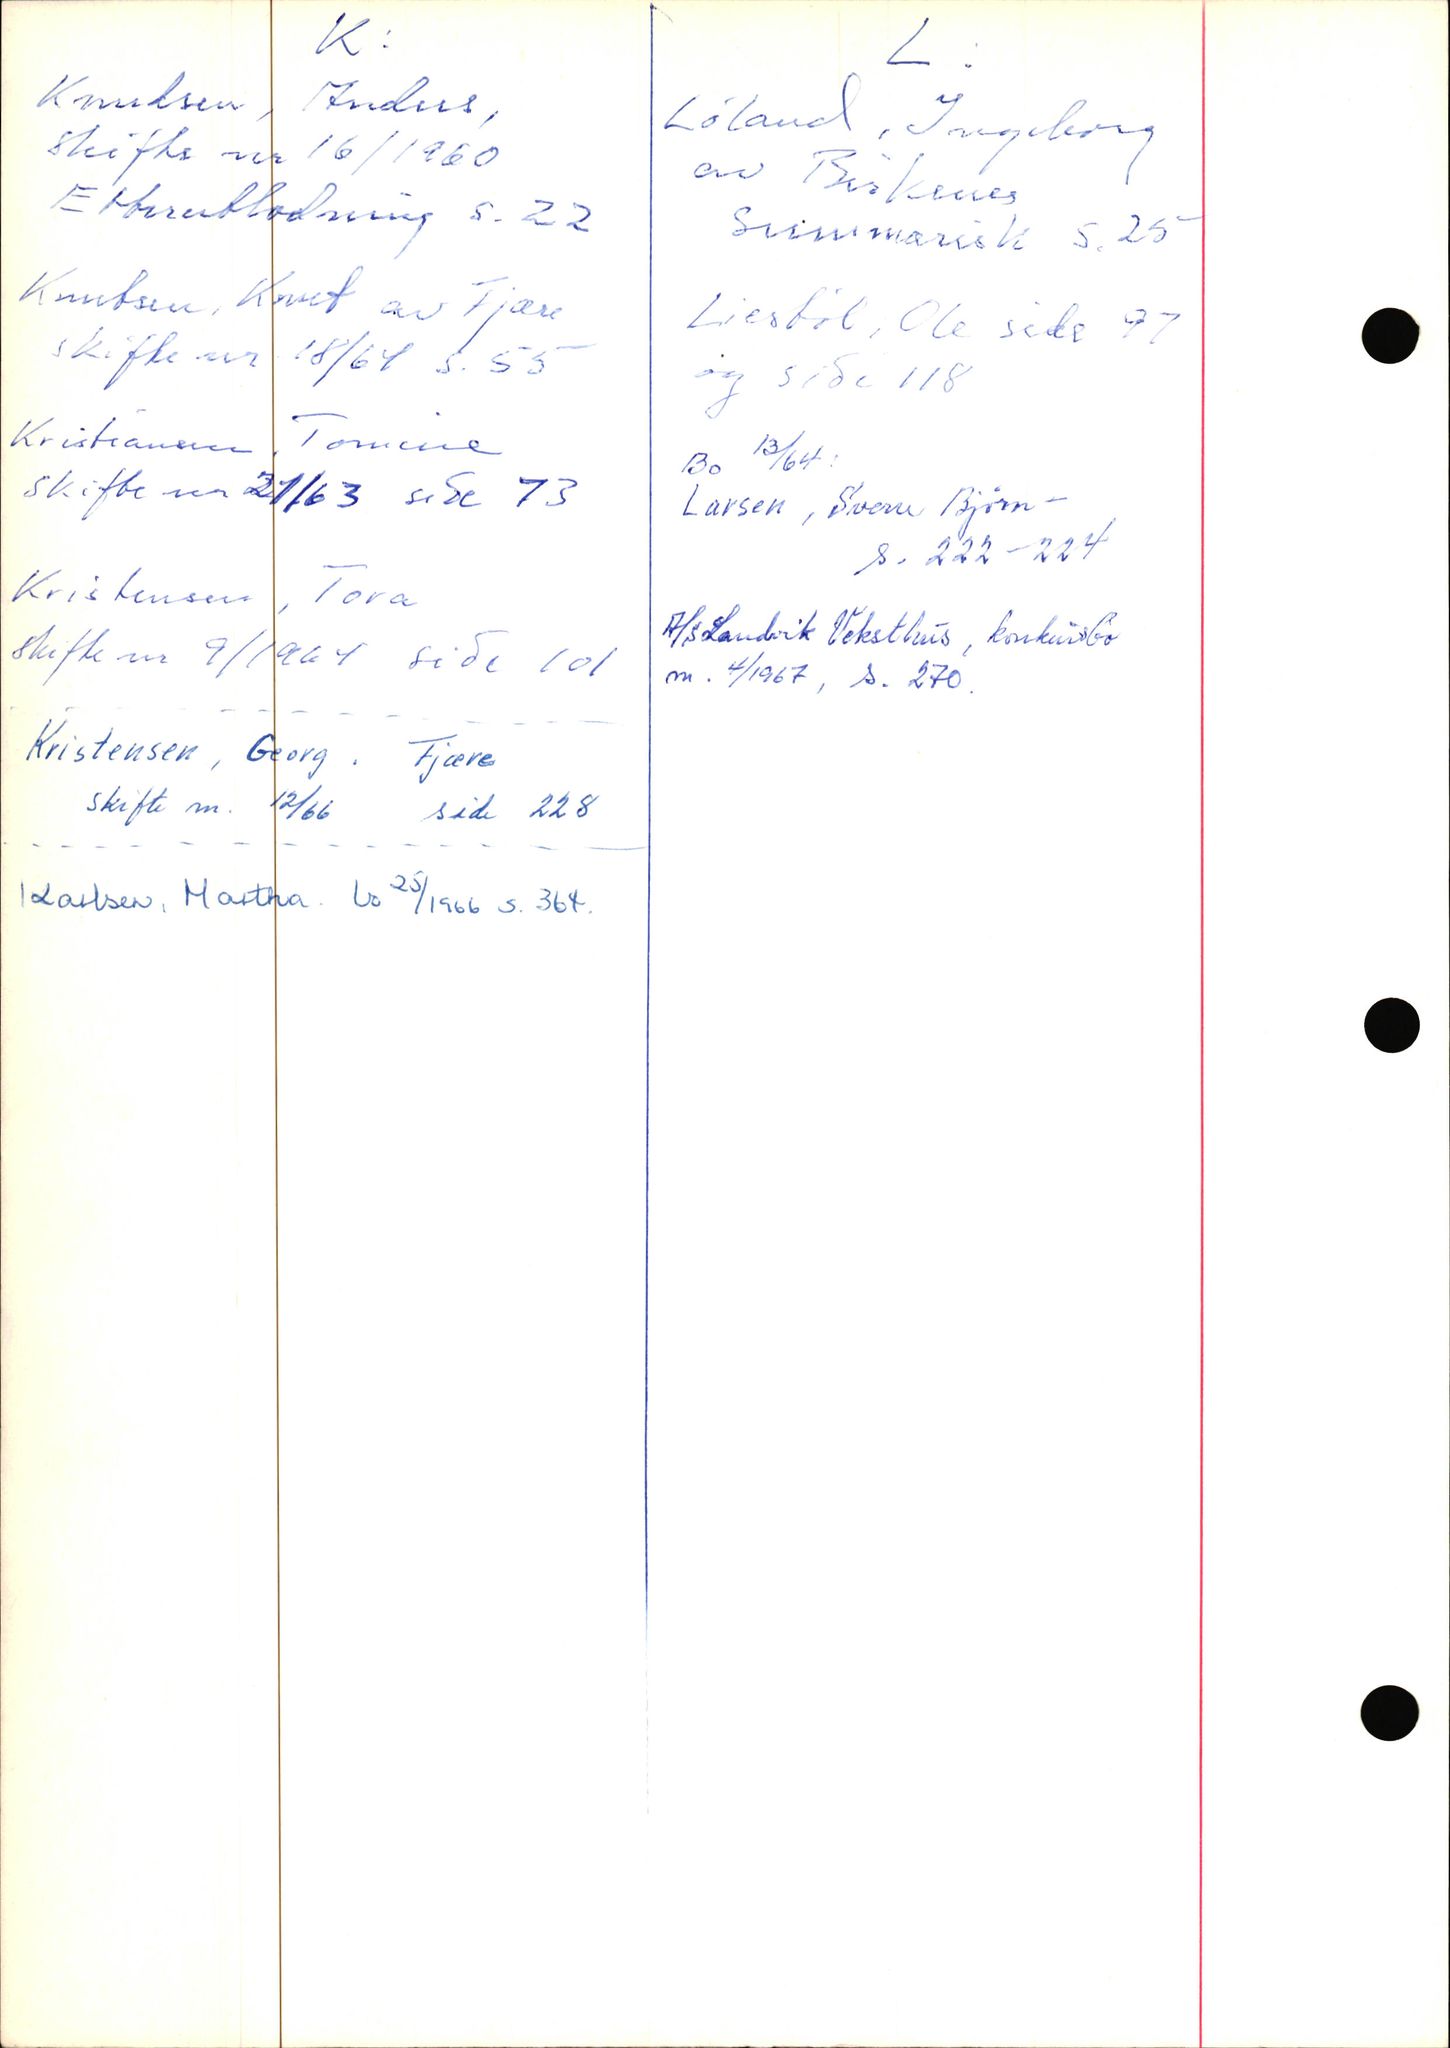 K:
Knudsen, Anders,
Skifte nr 16/1960
Etterutlodning s. 22
Knutsen, Knut av Fjære
skifte nr 18/64 s. 55
Kristiansen, Tomine
Skifte nr 21/63 side 73
Kristensen, Tora
Skifte nr 9/1964 side 101
Kristensen, Georg. Fjære
skifte nr. 12/66 side 228
Karlsen, Martha. bo 25/1966 s. 364.
L:
Löland, Ingeborg
av Birkenes
Summarisk s. 25
Liestöl, Ole side 97
og side 118
Bo 13/64:
Larsen, Svenn Björn -
s. 222-224
A/S Landvik Veksthus, konkursbo
nr. 4/1967, s. 270.